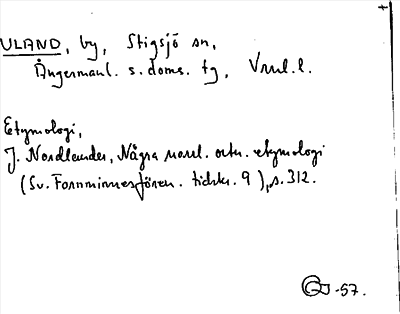 ULAND, by, Stigsjö sn,
Ångermanl. s. doms. tg, Vnrl. l.
Etymologi,
J. Nordlander, Några norrl. ortn. etymologi
(Sv. Fornminnesfören. tidskr. 9), s. 312.
-57.